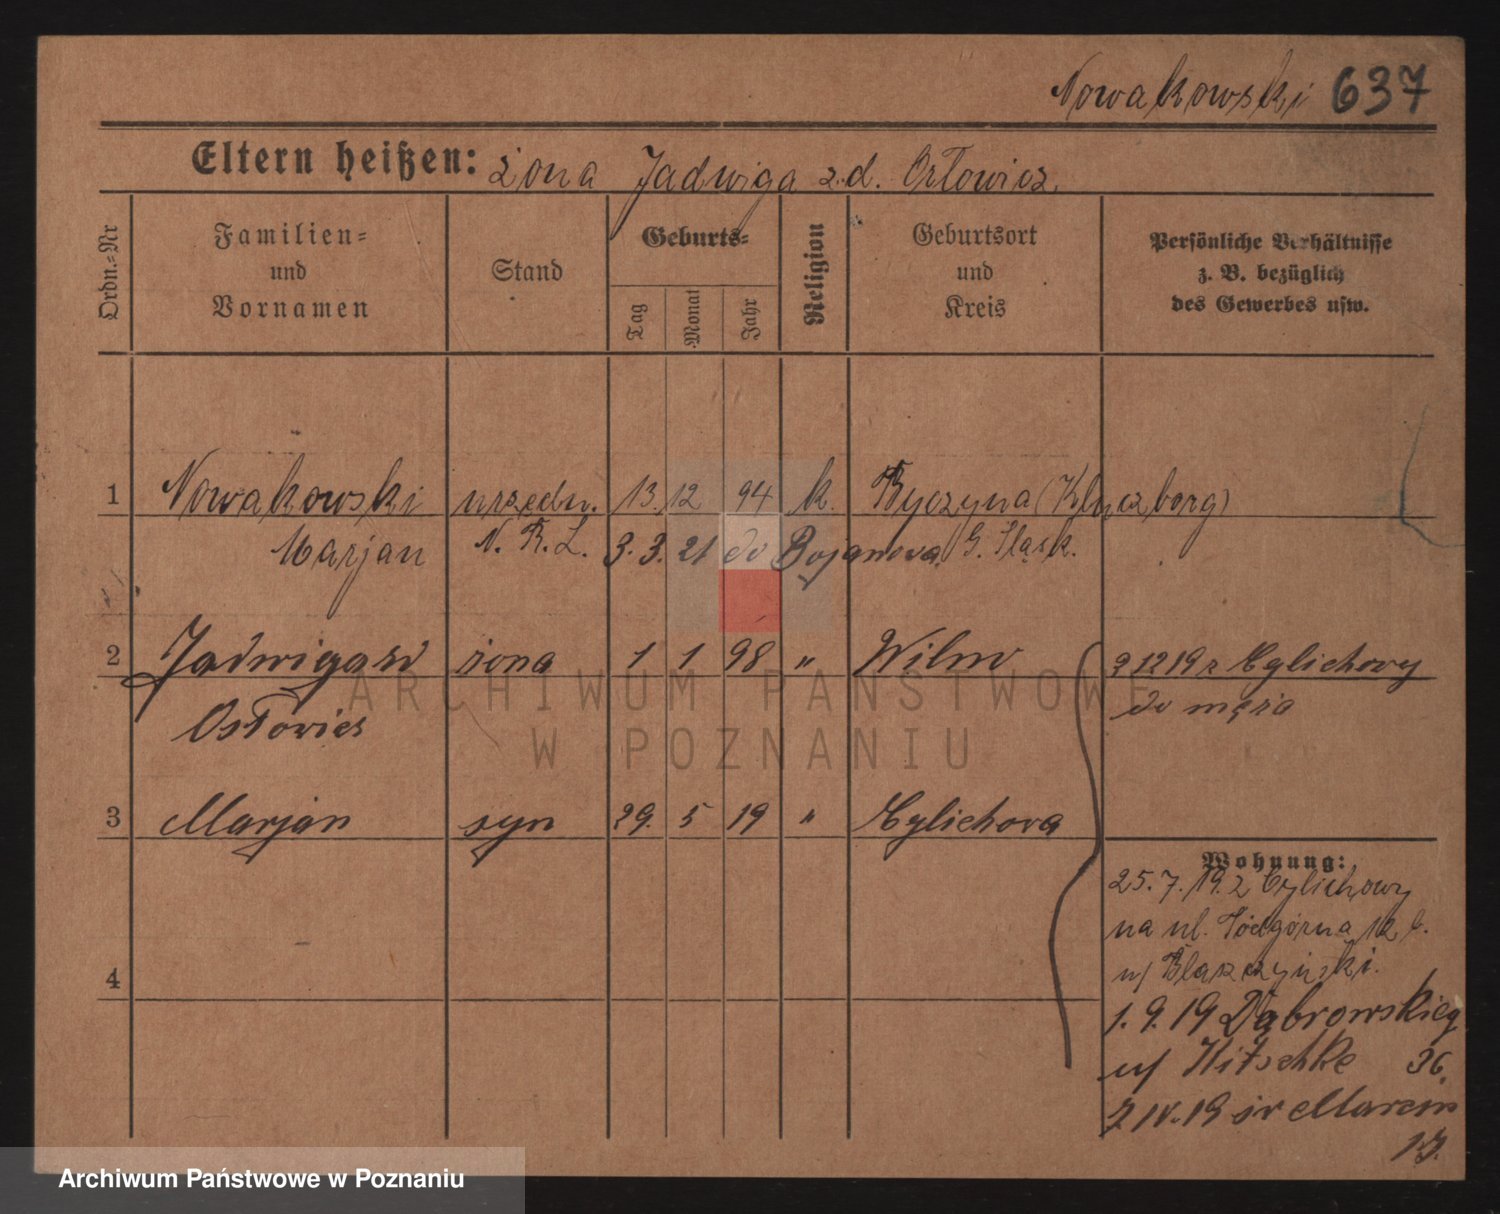 Nowakowski 637
Eltern heißen: żona Jadwiga z.d. Orłowicz.
Ordn.-Nr
Familien- und Vornamen
Stand
Geburts-
Tag
Monat
Jahr
Religion
Geburtsort und Kreis
Persönliche Verhältnisse
z. B. bezüglich
des Gewerbes usw.
1 Nowakowski urzędn. 13. 12 94 k. Byczyna (Kluczborg)
Marjan N. R. L. 3. 3. 21 do Bojanowa G. Śląsk.
2 Jadwiga żona 1 1 98 " Wilno 9 12 19 z Cylichowy
do męża
3 Marjan syn 29. 5 19 " Cylichova
Wohnung:
25. 7. 19. z Cylichowy
na ul. Podgórna 12 b.
u/ Błaszczyński.
1. 9. 19 Dąbrowskieg
u/ Nitschke 36.
IV. 19 św Marcin
4
ARCHIWUM PAŃSTWOWE
W POZNANIU
Archiwum Państwowe w Poznaniu